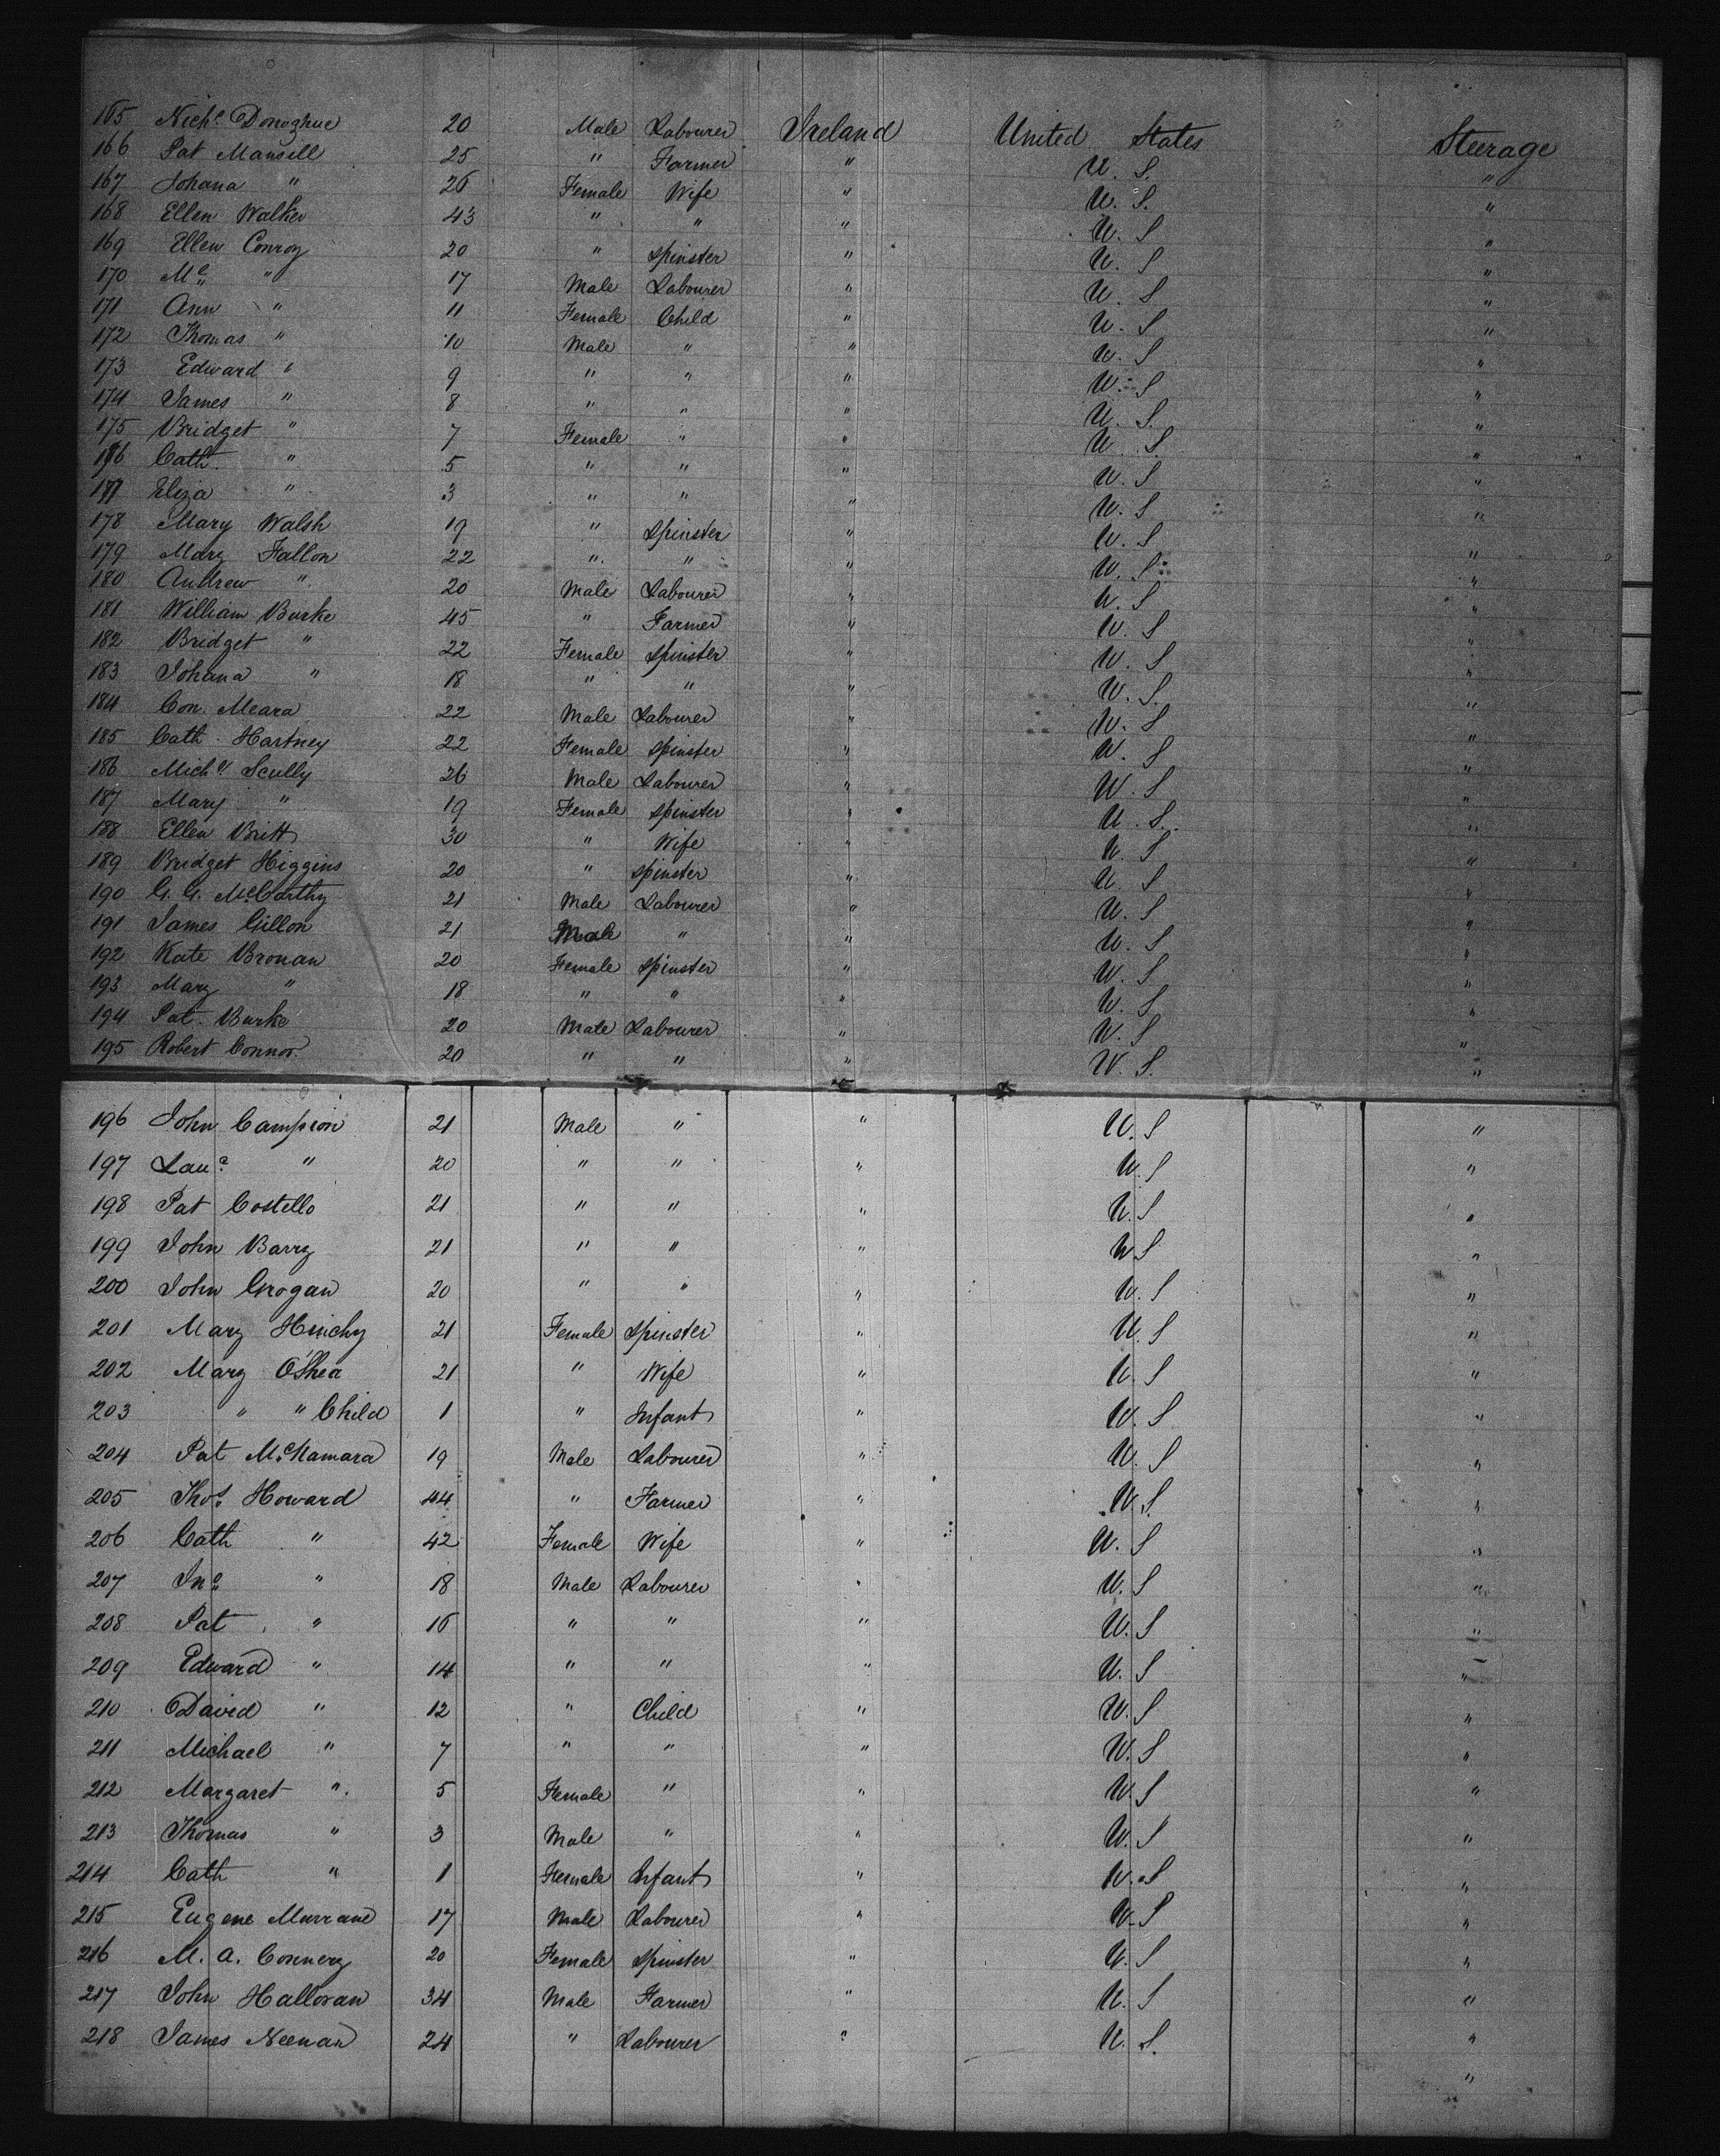 165 Nichs. Donoghue 20 Male Labourer Ireland United States Steerage
166 Pat Mansell 25 " Farmer " U. S. "
167 Johana " 26 Female Wife " U. S. "
168 Ellen Walker 43 " " " U. S "
169 Ellen Conroy 20 " Spinster " U. S "
170 " 17 Male Labourer " U. S "
171 Ann " 11 Female Child " U. S "
172 Thomas " 10 Male " " U. S "
173 Edward " 9 " " " U. S "
174 James " 8 " " " U. S. "
175 Bridget " 7 Female " " U. S. "
176 Cath. " 5 " " " U. S "
177 Eliza " 3 " " " U. S "
178 Mary Walsh 19 " Spinster " U. S "
179 Mary Fallon 22 " " " U. S "
180 Andrew " 20 Male Labourer " U. S "
181 William Burke 45 " Farmer " U. S "
182 Bridget " 22 Female Spinster " U. S "
183 Johana " 18 " " " U. S. "
184 Con. Meara 22 Male Labourer " U. S "
185 Cath. Hartney 22 Female Spinster " U. S "
186 Michl Scully 26 Male Labourer " U. S "
187 Mary " 19 Female Spinster " U. S. "
188 Ellen Britt 30 " Wife " U. S "
189 Bridget Higgins 20 " Spinster " U. S "
190 G. G. McCarthy 21 Male Labourer " U. S "
191 James Gillon 21 Male " " U. S "
192 Kate Bronan 20 Female Spinster " U. S "
193 Mary " 18 " " " U. S "
194 Pat. Burke 20 Male Labourer " U. S "
195 Robert Connor. 20 " " " U. S. "
196 John Campion 21 Male " " U. S "
197 Lau " 20 " " " U. S "
198 Pat Costello 21 " " " U. S "
199 John Barry 21 " " " U S "
200 John Grogan 20 " " " U. S "
201 Mary Hinchy 21 Female Spinster " U. S "
202 Mary O'Shea 21 " Wife " U. S "
203 " " Child 1 " Infant " U. S "
204 Pat McNamara 19 Male Labourer " U. S "
205 Thos. Howard 44 " Farmer " U. S. "
206 Cath " 42 Female Wife " U. S "
207 Jno " 18 Male Labourer " U. S "
208 Pat " 16 " " " U. S "
209 Edward " 14 " " " U. S "
210 David " 12 " Child " U. S "
211 Michael " 7 " " " U. S "
212 Margaret " 5 Female " " U. S "
213 Thomas " 3 Male " " U. S "
214 Cath " 1 Female Infant " U. S "
215 Eugene Murrane 17 Male Labourer " U. S "
216 M. A. Connery 20 Female Spinster " U. S "
217 John Halloran 34 Male Farmer " U. S "
218 James Neenan 24 " Labourer " U. S. "
"